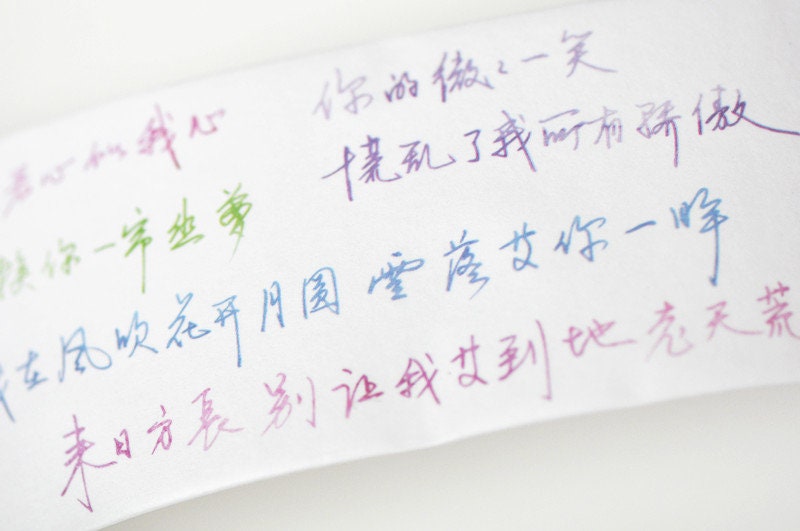 君心似我心
你的微微一笑
慌乱了我所有骄傲
换你一帘幽夢
我在风吹花开月圆 雲落艾你一眸
来日方長 别让我艾到地老天荒